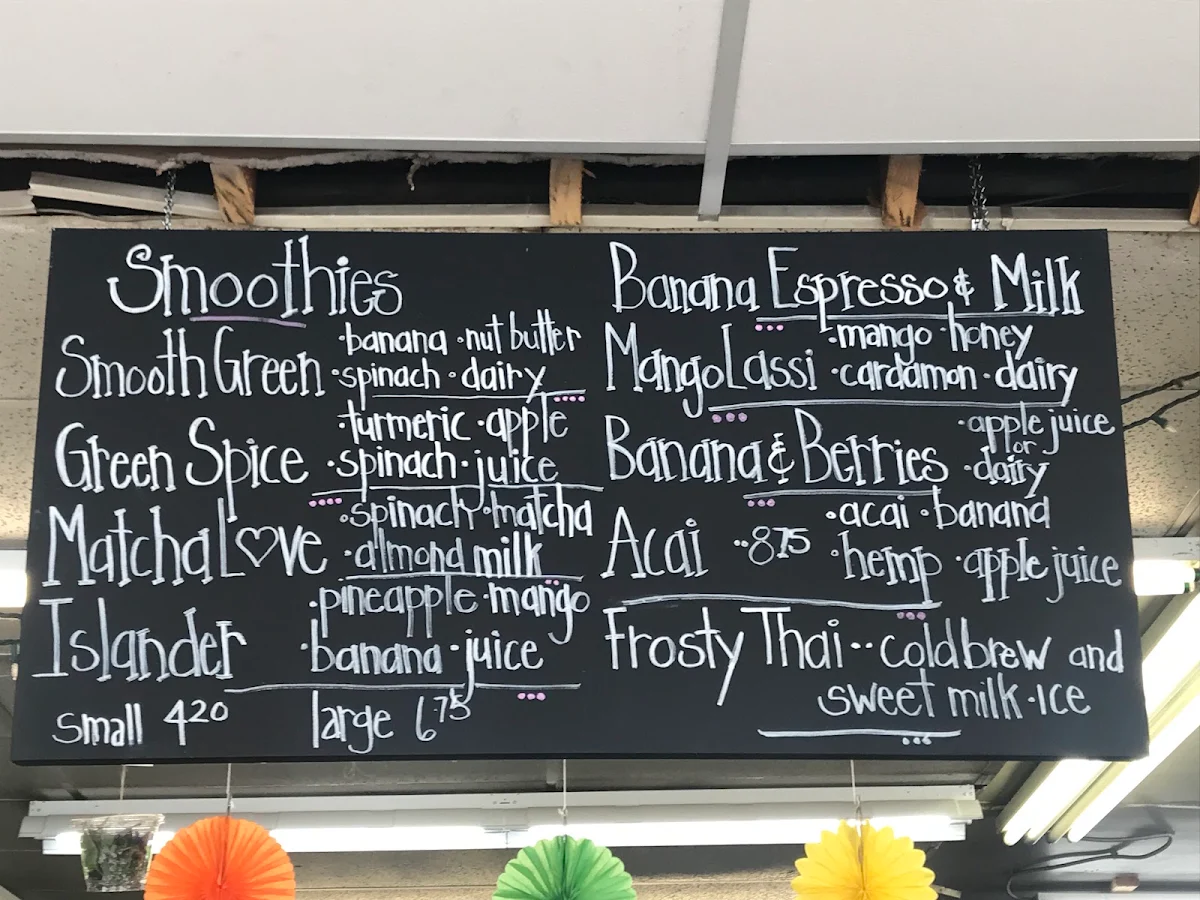 Smoothies
Smooth Green
·banana ·nut butter
·spinach ·dairy
Green Spice
·turmeric ·apple
·spinach ·juice
Matcha L♡ve
·spinach ·matcha
·almond milk
Islander
·pineapple ·mango
·banana ·juice
small 4 20
large 6 75
Banana Espresso & Milk
Mango Lassi
·mango ·honey
·cardamon ·dairy
Banana & Berries
·apple juice
or
·dairy
Acai ··8 75
·acai ·banana
·hemp ·apple juice
Frosty Thai ·· coldbrew and
sweet milk ·ice